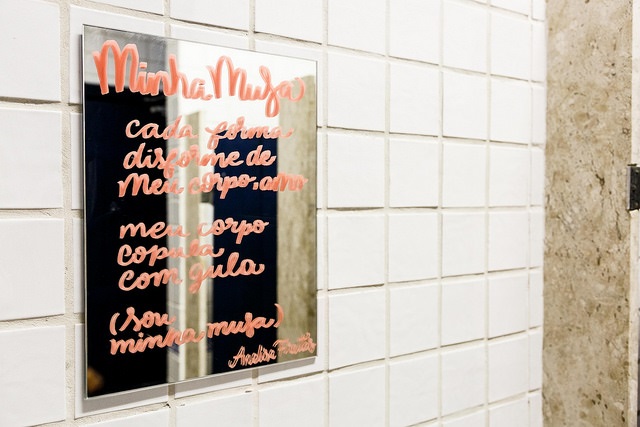 Minha Musa
cada forma
disforme de
meu corpo, amo
meu corpo
copula
com gula
(sou
minha musa)
Analisa Freitas